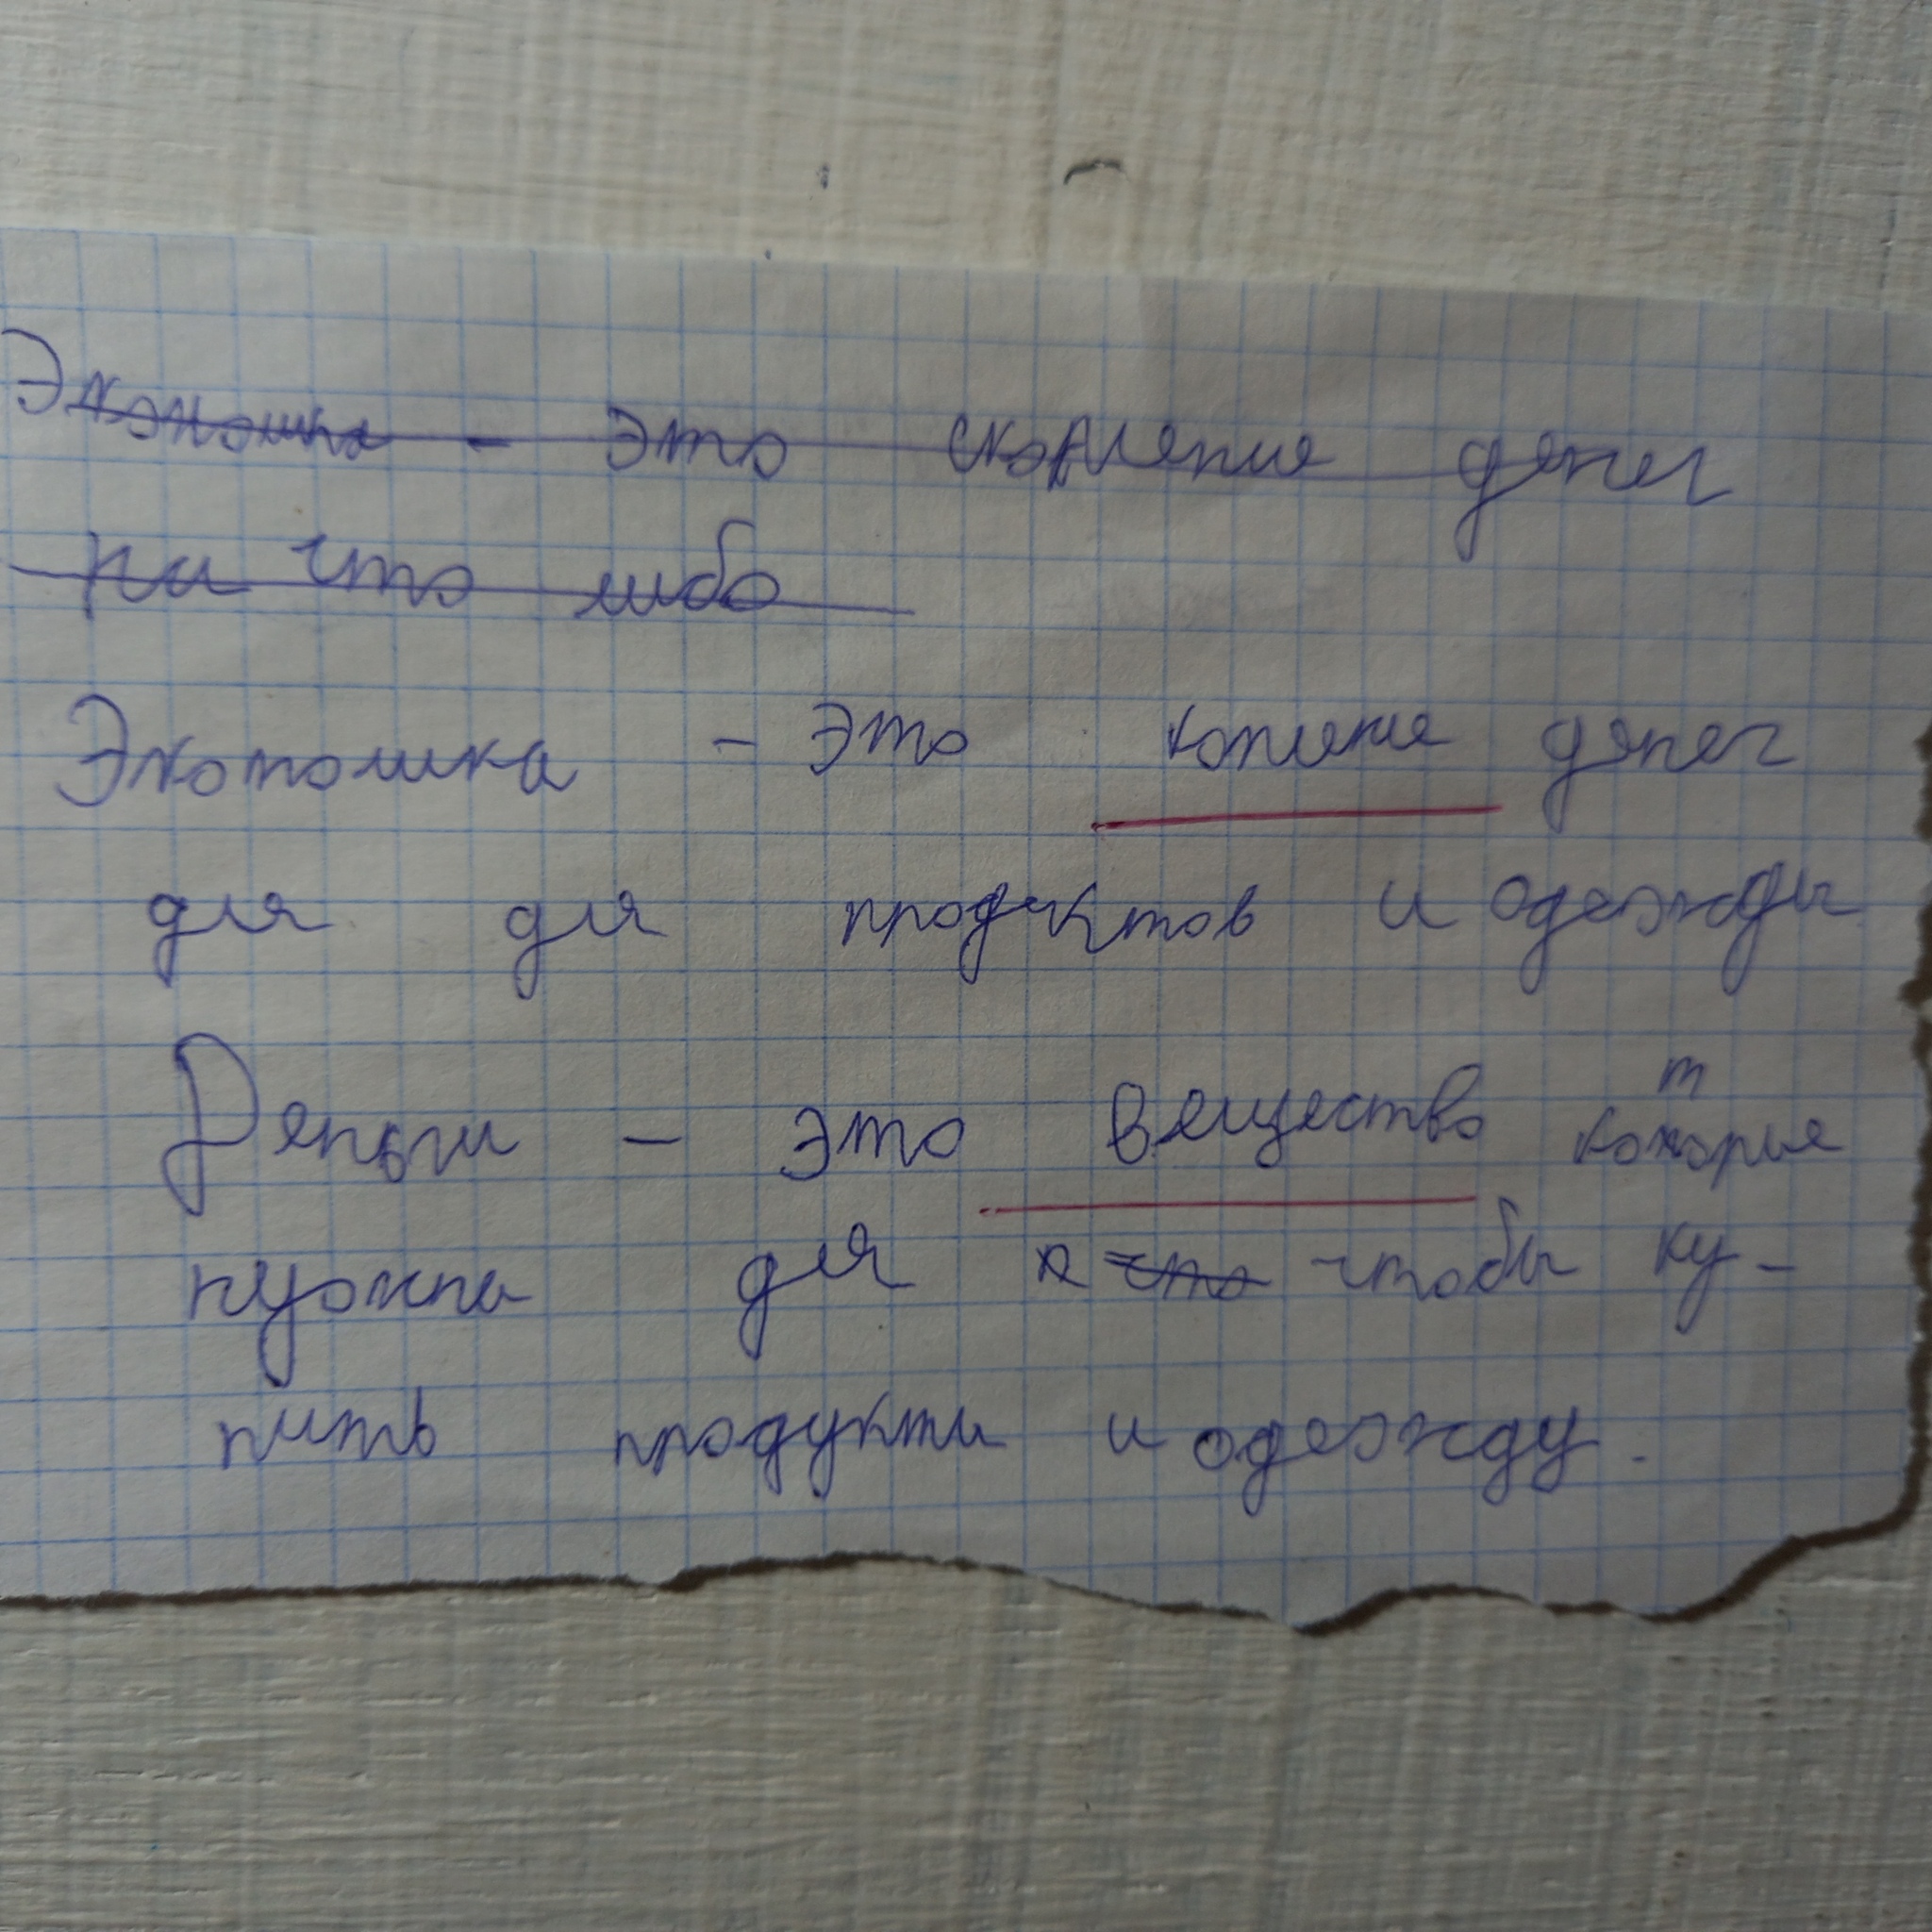 Экономика - это скопление денег
на что либо
Экономика - это копление денег
для для продуктов и одежды
Деньги - это вещество которые
нужны для к что чтобы ку-
пить продукты и одежду.